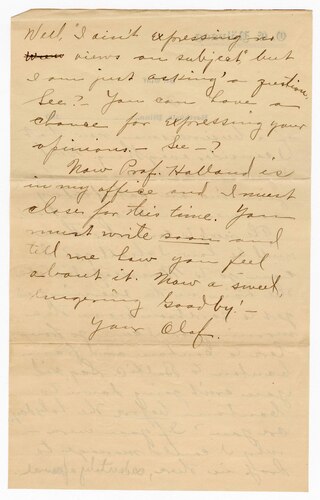 Well, "I ain't expressing no
views on subject", but
I am just asking' a question
See? - You can have a
chance for expressing your
opinions. - See - ?
Now Prof. Holland is
in my office and I must
close for this time. You
must write soon and
tell me how you feel
about it. Now a sweet,
lingering Goodby! -
Your Olaf.